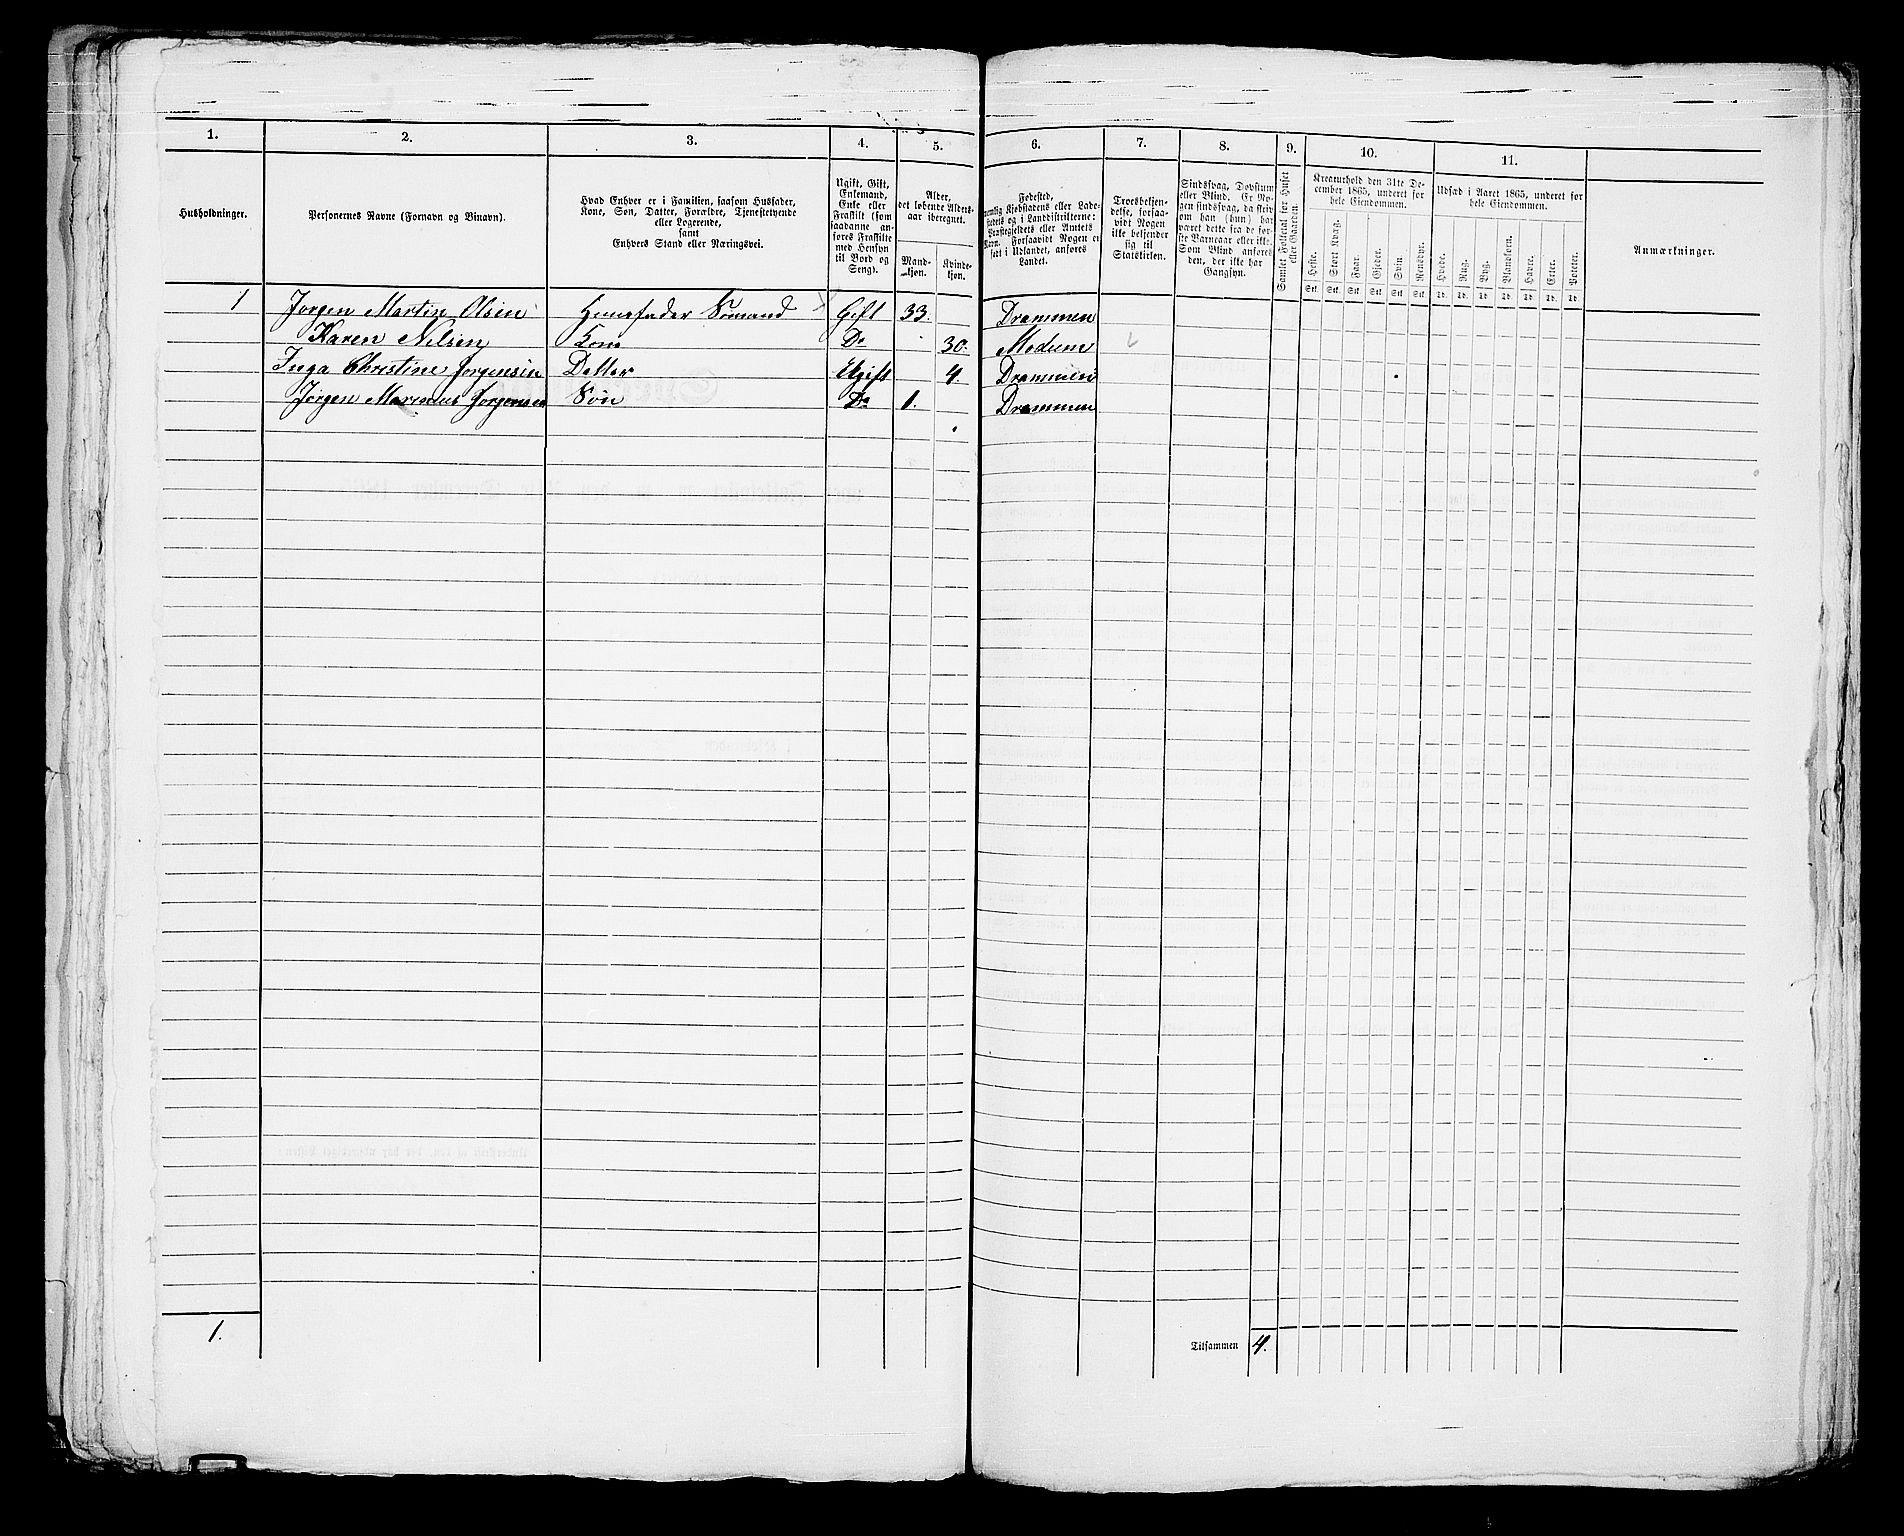 1. 2. 3. 4. 5. 6. 7. 8. 9. 10. 11.
Husholdninger.
Personernes Navne (Fornavn og Binavn).
Hvad Enhver er i Familien, saasom Husfader,
Kone, Søn, Datter, Forældre, Tjenestetyende
eller Logerende,
samt
Enhvers Stand eller Næringsvei.
Ugift, Gift,
Enkemand,
Enke eller
Fraskilt (som
saadanne an-
føres Fraskilte
med Hensyn
til Bord og
Seng).
Alder,
det løbende Alders-
aar iberegnet.
Mand-
kjøn.
Kvinde-
kjøn.
Fødested,
nemlig Kjøbstadens eller Lade-
stedets og i Landdistrikterne:
Præstegjeldets eller Amtets
Navn. Forsaavidt Nogen er
født i Udlandet, anføres
Landet.
Troesbekjen-
delse, forsaa-
vidt Nogen
ikke bekjender
sig til
Statskirken.
Sindssvag, Døvstum
eller Blind. Er No-
gen sindssvag, da skriv
om han (hun) har
været dette fra de før-
ste Barneaar eller ikke.
Som Blind anføres
den, der ikke har
Gangsyn.
Samlet Folketal for Huset
eller Gaarden.
Kreaturhold den 31te De-
cember 1865, underet for
hele Eiendommen.
Heste. Stort Kvæg. Faar. Gjeder. Svin. Rensdyr.
Stk. Stk. Stk. Stk. Stk. Stk.
Udsæd i Aaret 1865, underet for
hele Eiendommen.
Hvede. Rug. Byg. Blandkorn. Havre. Erter. Poteter.
Td. Td. Td. Td. Td. Td. Td.
Anmærkninger.
1 Jørgen Martin Olsen Huusfader Sømand Gift 33. Drammen
Karen Nilsen Kone Do 30. Modum
Inga Christine Jørgensen Datter Ugift 4. Drammen
Jørgen Marinius Jørgensen Søn Do 1. Drammen
1. Tilsammen 4.